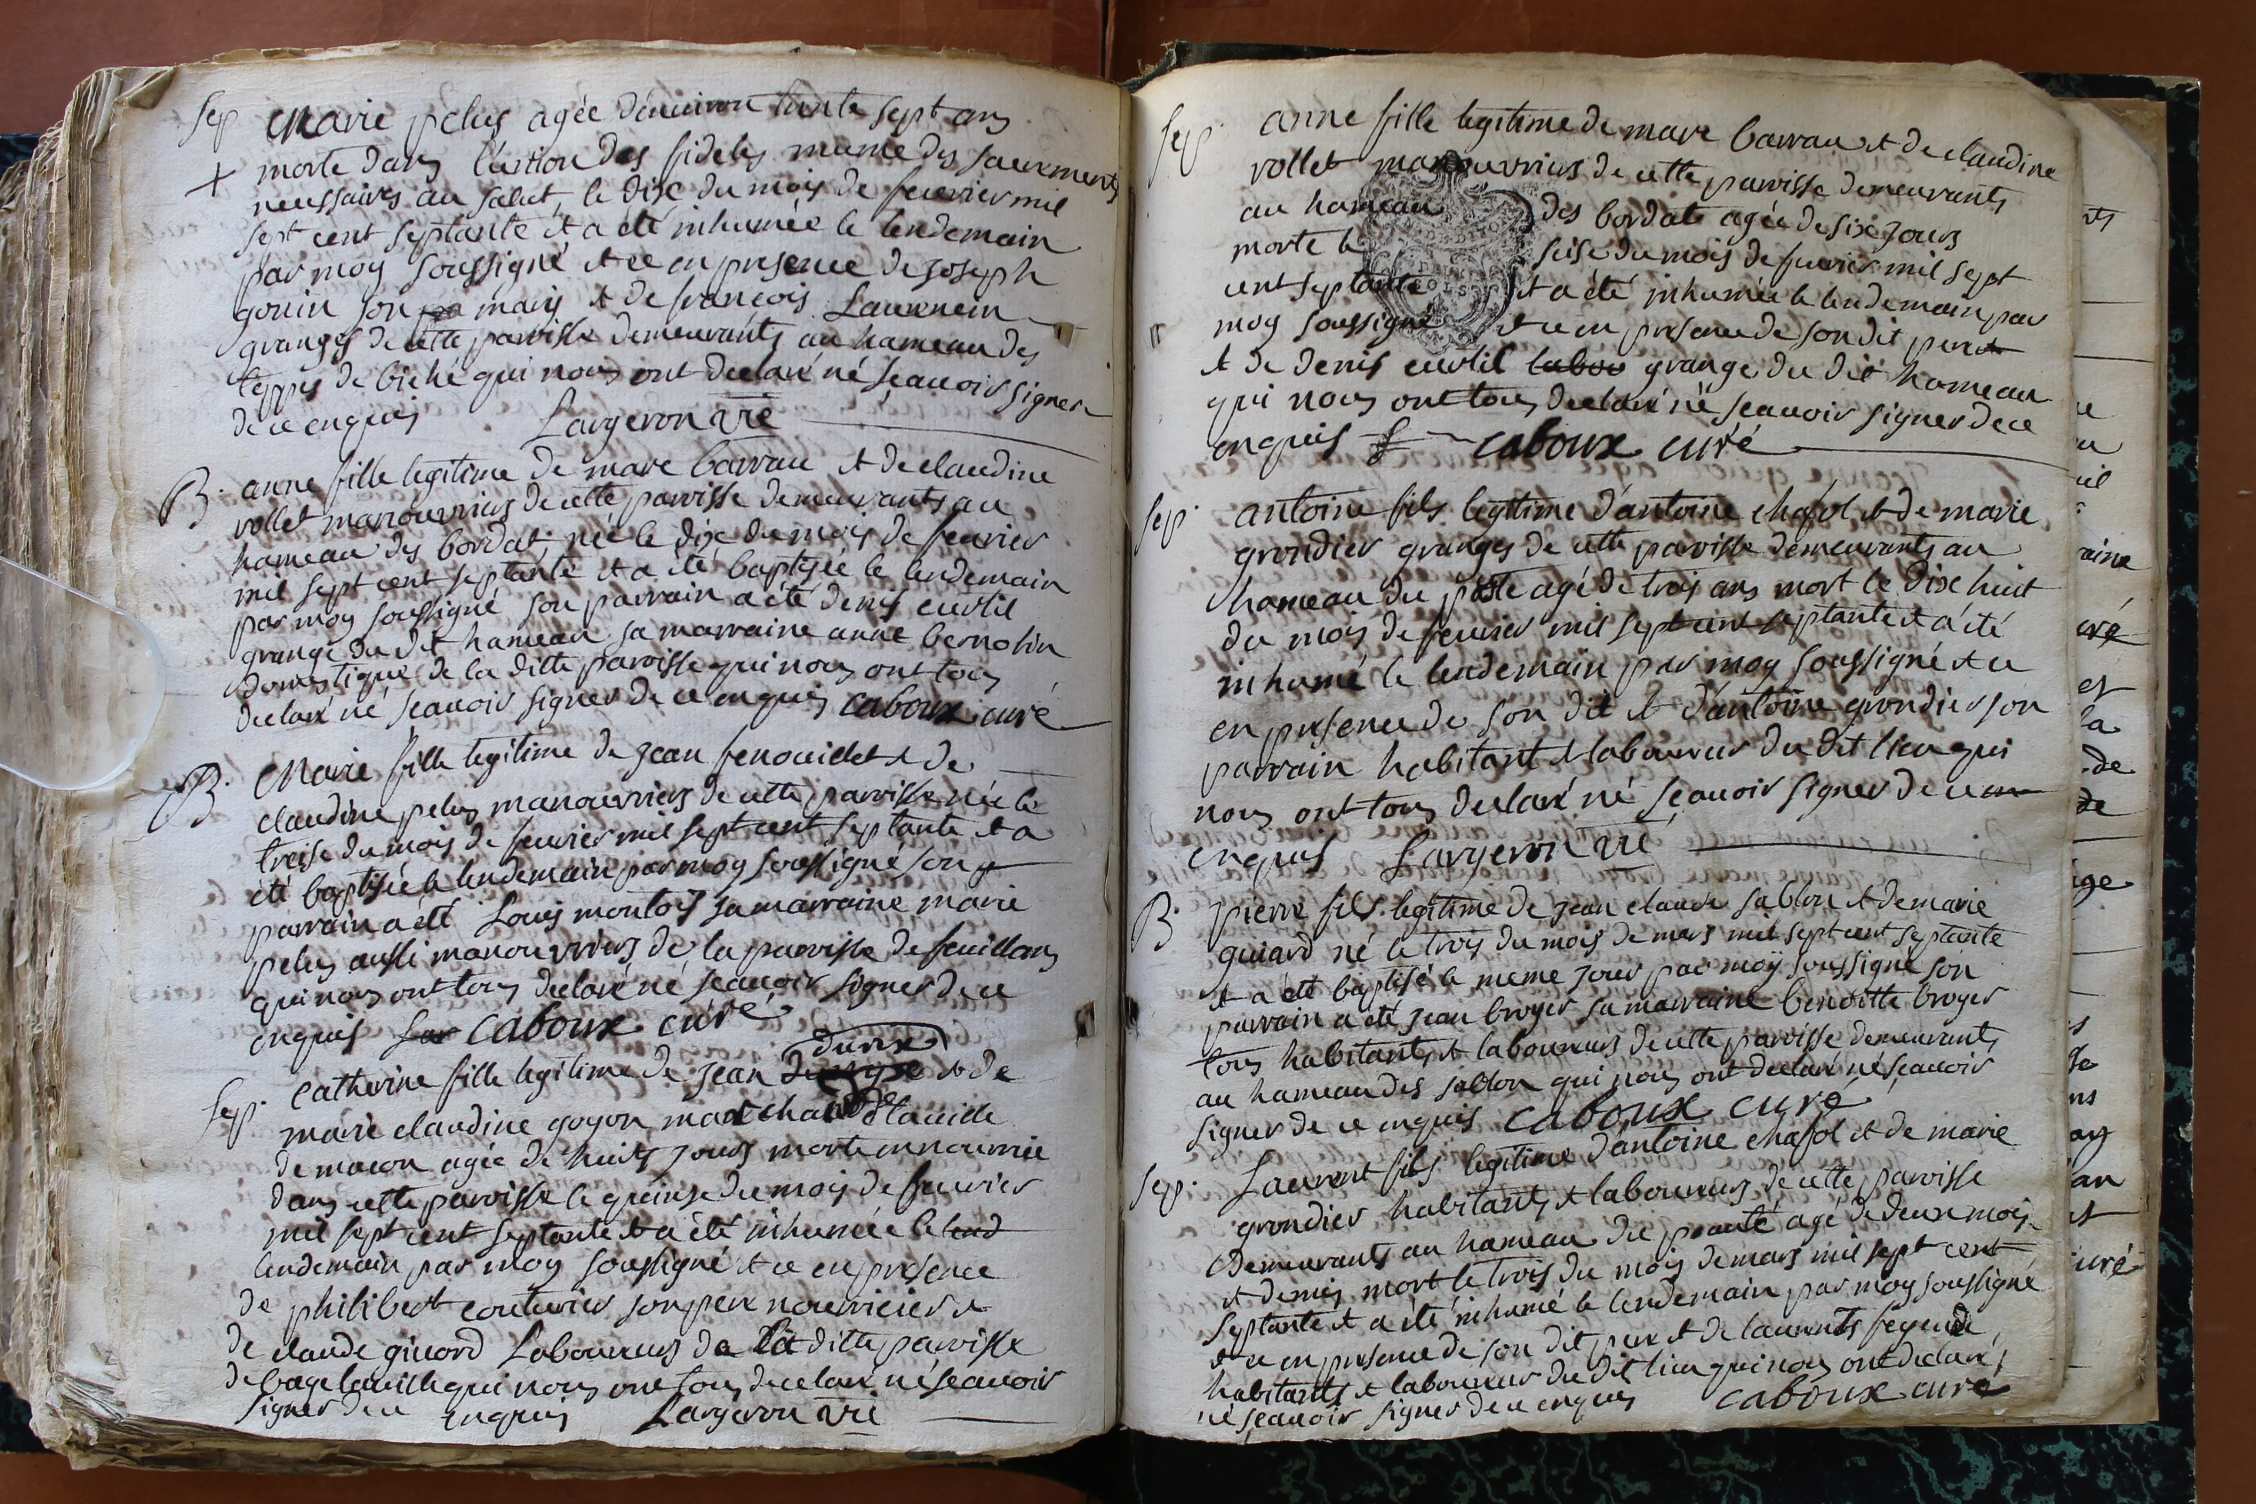 Sep Marie pelus agée d'environ trante sept ans
+ morte dans l'union des fideles munie des sacrements
necessaires au salut, le dix du mois de fevrier mil
sept cent septante et a été inhumée le lendemain
par moy soussigné et ce en presence de joseph
gouin son mary et de françois Laurencin
granges de cette paroisse demeurants au hameau des
teppes de biché qui nous ont declaré né sçauoir signer
de ce enquis Largeron vic
B. anne fille legitime de marc barrau et de claudine
vollet manouvriers de cette paroisse demeurants au
hameau des bordat née le dix du mois de fevrier
mil sept cent septante et a été baptisée le lendemain
par moy soussigné son parrain a été denis curtil
grange du dit hameau sa marraine anne bernolin
domestique de la ditte paroisse qui nous ont tous
declaré né sçauoir signer de ce enquis caboux curé
B. Marie fille legitime de jean fenouillet et de
claudine pelus manouvriers de cette paroisse née le
treise du mois de fevrier mil sept cent septante et a
été baptisée le lendemain par moy soussigné son
parrain a été Louis montois sa marraine marie
pelus aussi manouvriers de la paroisse de feuillans
qui nous ont tous declaré né sçauoir signer de ce
enquis caboux curé
durix
sep. catherine fille legitime de jean et de
marie claudine goyon marchand de la uille
de macon agée de huits jours morte en nourrice
dans cette paroisse le quinse du mois de fevrier
mil sept cent septante et a été inhumée le lend
lendemain par moy soussigné et ce en présence
de philibert couturier son pere nourricier et
de claude giuord Laboureurs de la ditte paroisse
de bage la uille qui nous ont tous declaré né sçauoir
signer de ce enquis Largeron vic
sep. anne fille legitime de marc barrau et de claudine
vollet manouvriers de cette paroisse demeurants
au hameau des bordat agée de six jours
morte le seise du mois de fevrier mil sept
cent septante et a été inhumée le lendemain par
moy soussigné et ce en presence de son dit pere
et de denis curtil labou grange du dit hameau
qui nous ont tous declaré né sçauoir signer de ce
enquis caboux curé
sep. antoine fils legitime d'antoine chafol et de marie
grondier granges de cette paroisse demeurants au
hameau du agé de trois ans mort le dix huit
du mois de fevrier mil sept cent septante et a été
inhumé le lendemain par moy soussigné et ce
en presence de son dit et d'antoine grondier son
parrain habitant et laboureur du dit lieu qui
nous ont tous declaré né sçauoir signer de ce
enquis Largeron vic
B. pierre fils legitime de jean claude sablon et de marie
guiard né le trois du mois de mars mil sept cent septante
et a été baptisé le meme jour par moy soussigné son
parrain a été jean broyer sa marraine benoitte broyer
tous habitants et laboureurs de cette paroisse demeurants
au hameau des sablon qui nous ont declaré né sçauoir
signer de ce enquis caboux curé
sep. Laurent fils legitime d'antoine chafol et de marie
grondier habitants et laboureurs de cette paroisse
demeurants au hameau du agé de deux mois
et demis mort le trois du mois de mars mil sept cent
septante et a été inhumé le lendemain par moy soussigné
et ce en presence de son dit pere et de laurents
habitants et laboureur du dit lieu qui nous ont declaré
né sçauoir signer de ce enquis caboux curé